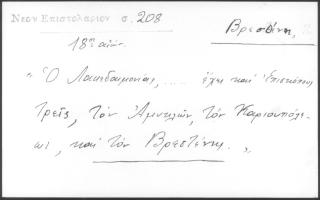 Νεον Επιστολαριον σ. 208
Βρεσθένη,
18ος αἰών.
"Ὁ Λακεδαιμονίας, ..... ἔχει καὶ Ἐπισκόπους
τρεῖς, τὸν Ἀμυκλῶν, τὸν Καριουπόλε-
ως, καὶ τὸν Βρεστένης.„